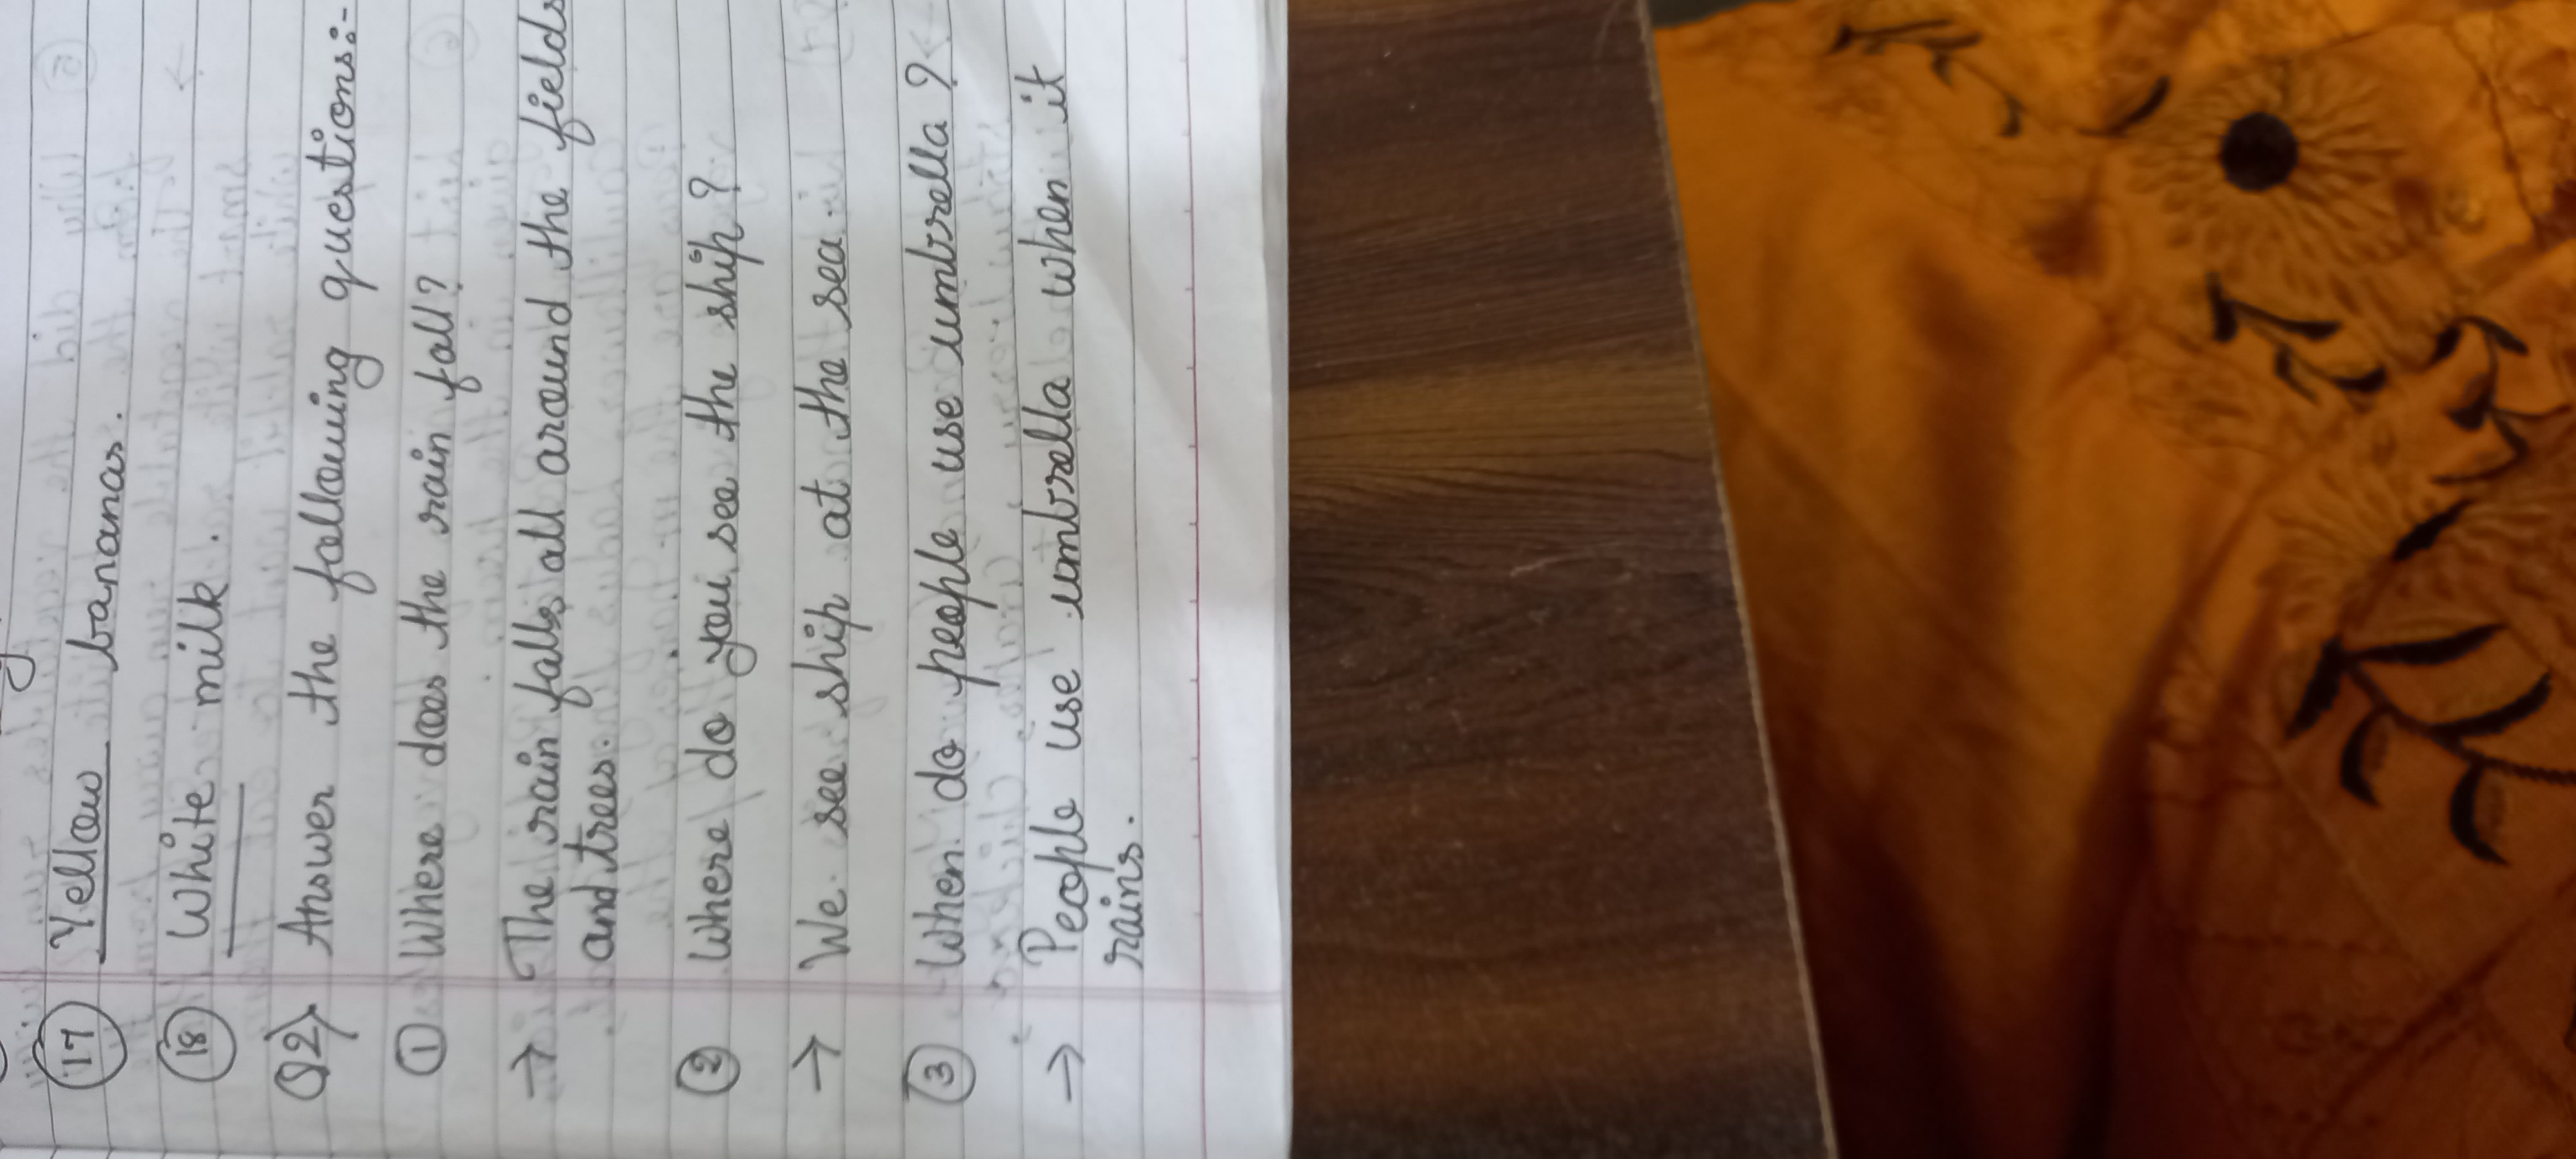 17 Yellow bananas.
18 White milk.
Q2) Answer the following questions:-
1 Where does the rain fall?
→ The rain falls all around the fields
and trees.
2 Where do you see the ship?
→ We see ship at the sea.
3 When do people use umbrella?
→ People use umbrella when it
rains.